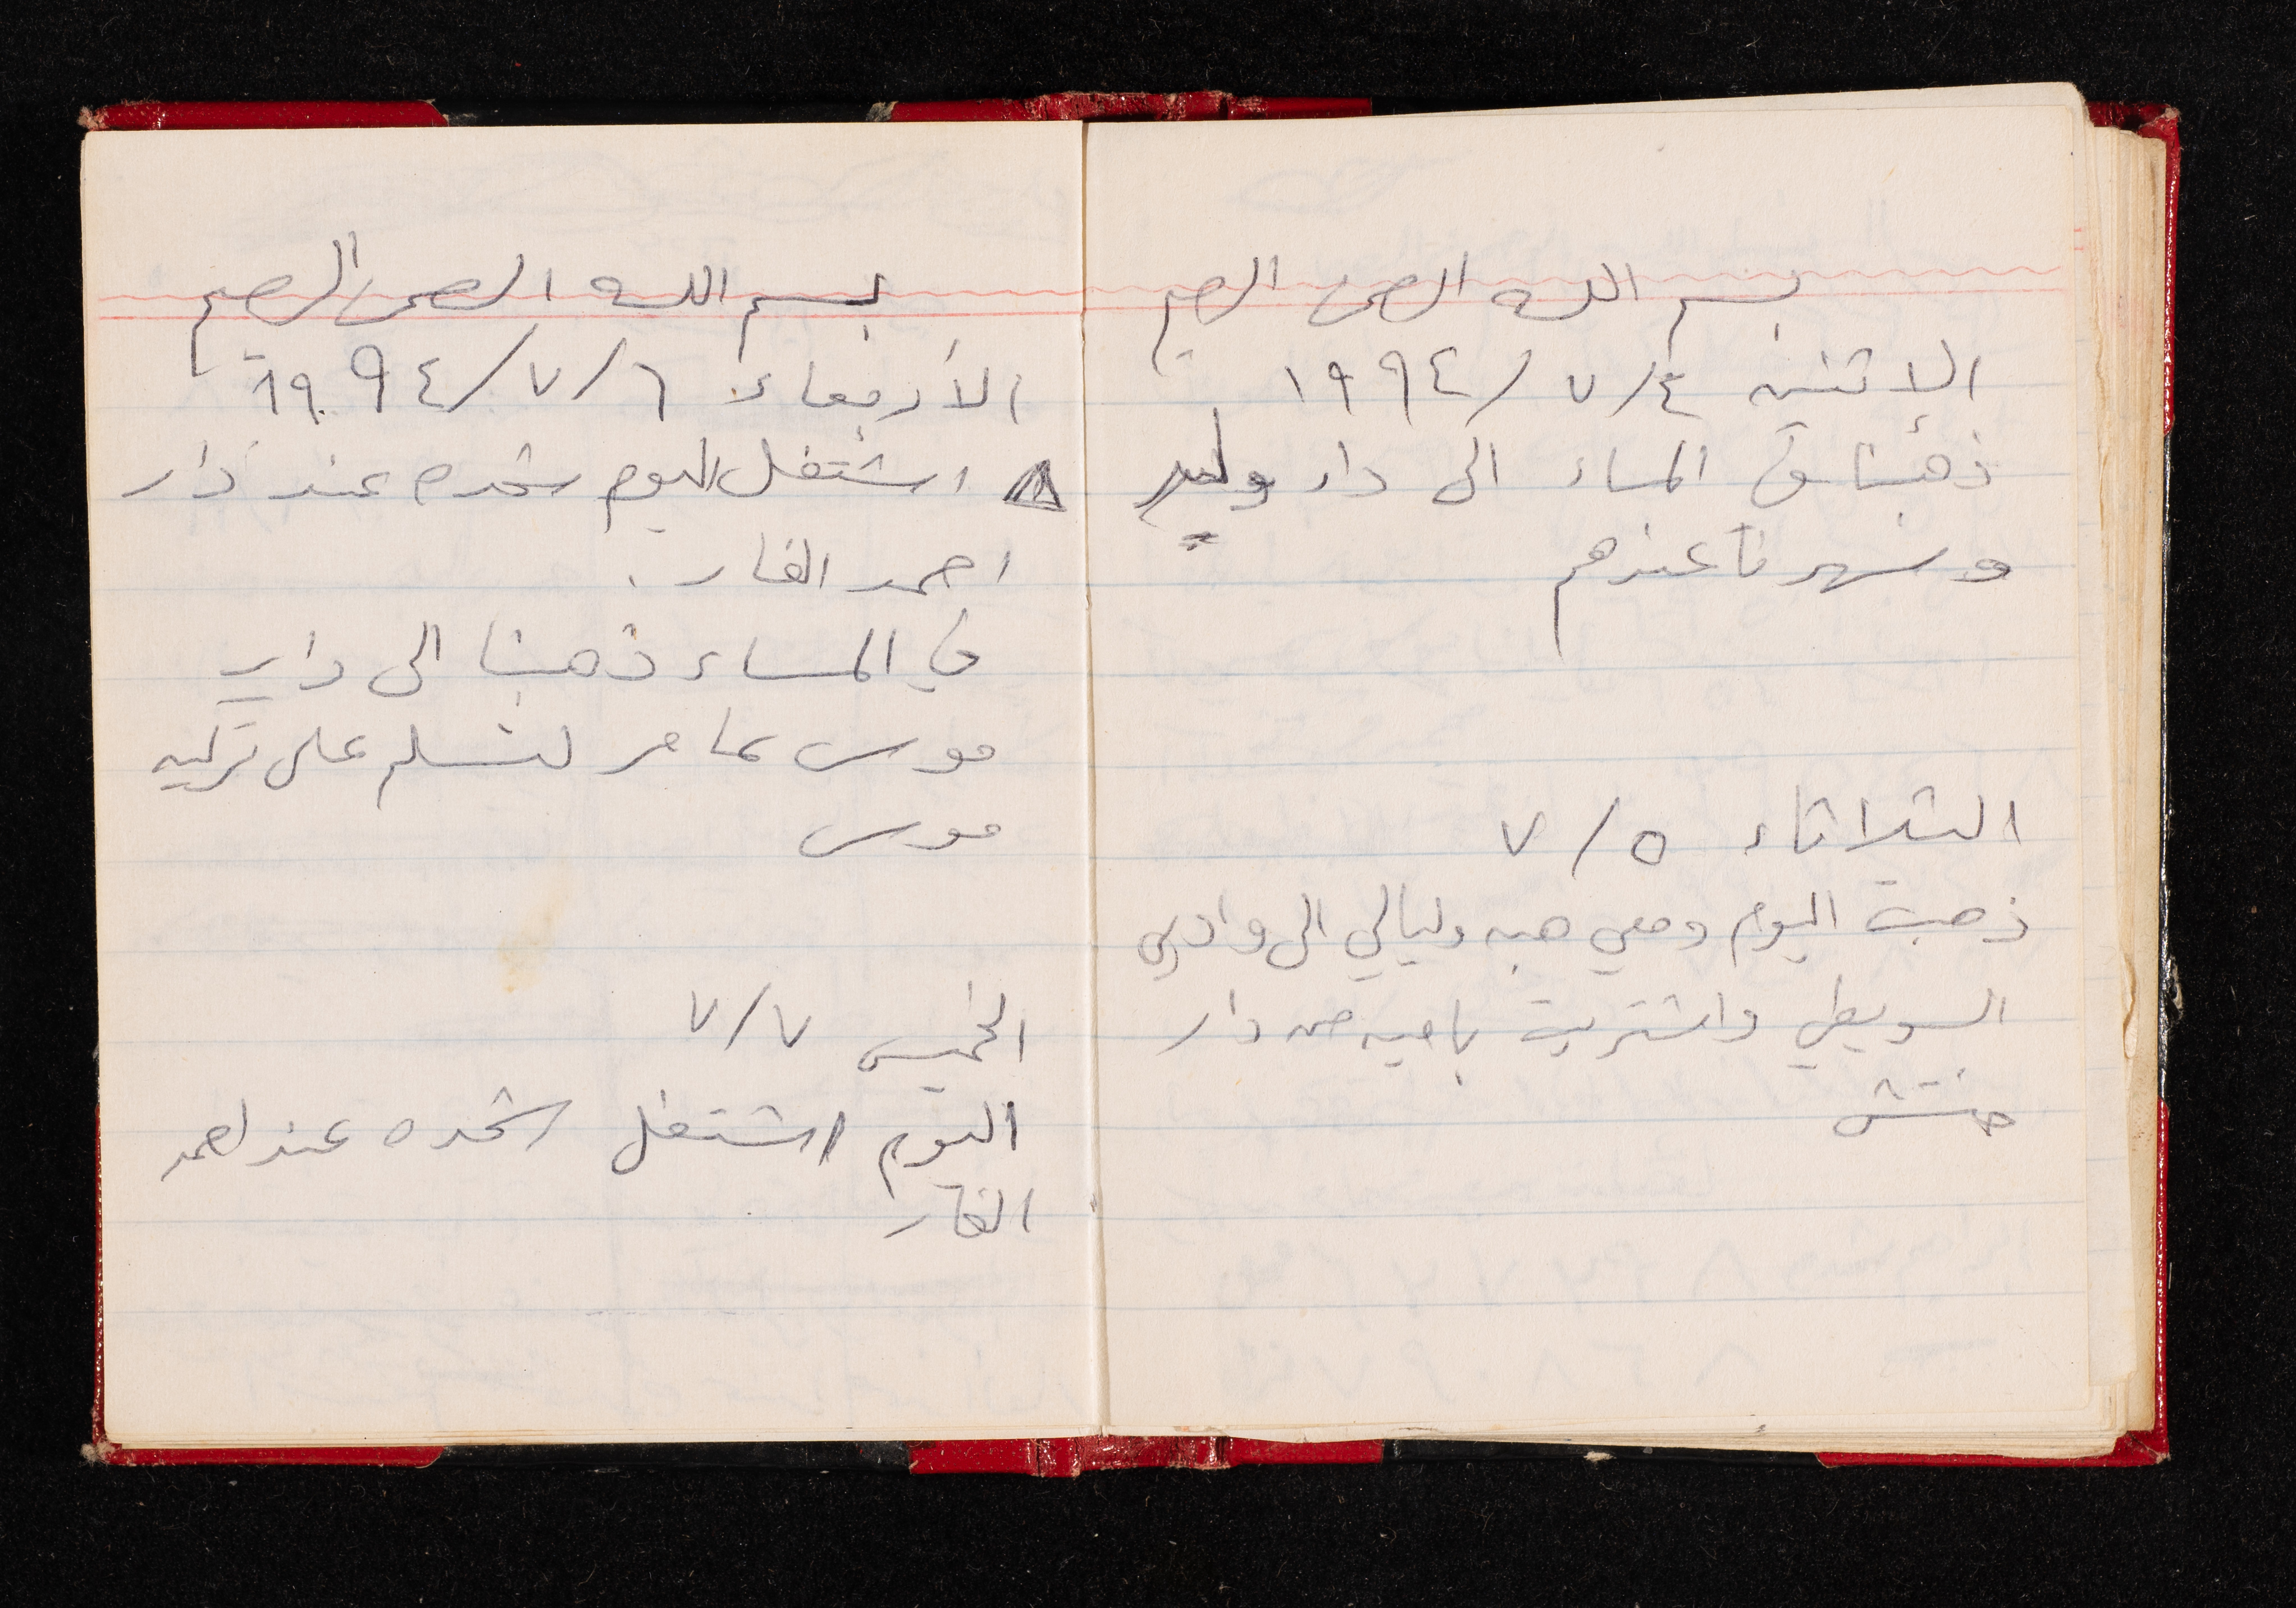 بسم الله الرحمن الرحيم
الإثنين ٤/٧/١٩٩٤
ذهبنا في المساء الى دار وليد
وسهرنا عندهم
الثلاثاء ٥/٧
ذهبت اليوم ومعي هبه وليالي الى وادي
السويطي واشتريت باميه من دار
حنتش
بسم الله الرحمن الرحيم
الأربعاء ٦/٧/١٩٩٤
اشتغل اليوم شحده عند دار
احمد الفار.
في المساء ذهبنا الى دار
موسى عامر لنسلم على تركيه
موسى
الخميس ٧/٧
اليوم اشتغل شحده عند احمد
الفار